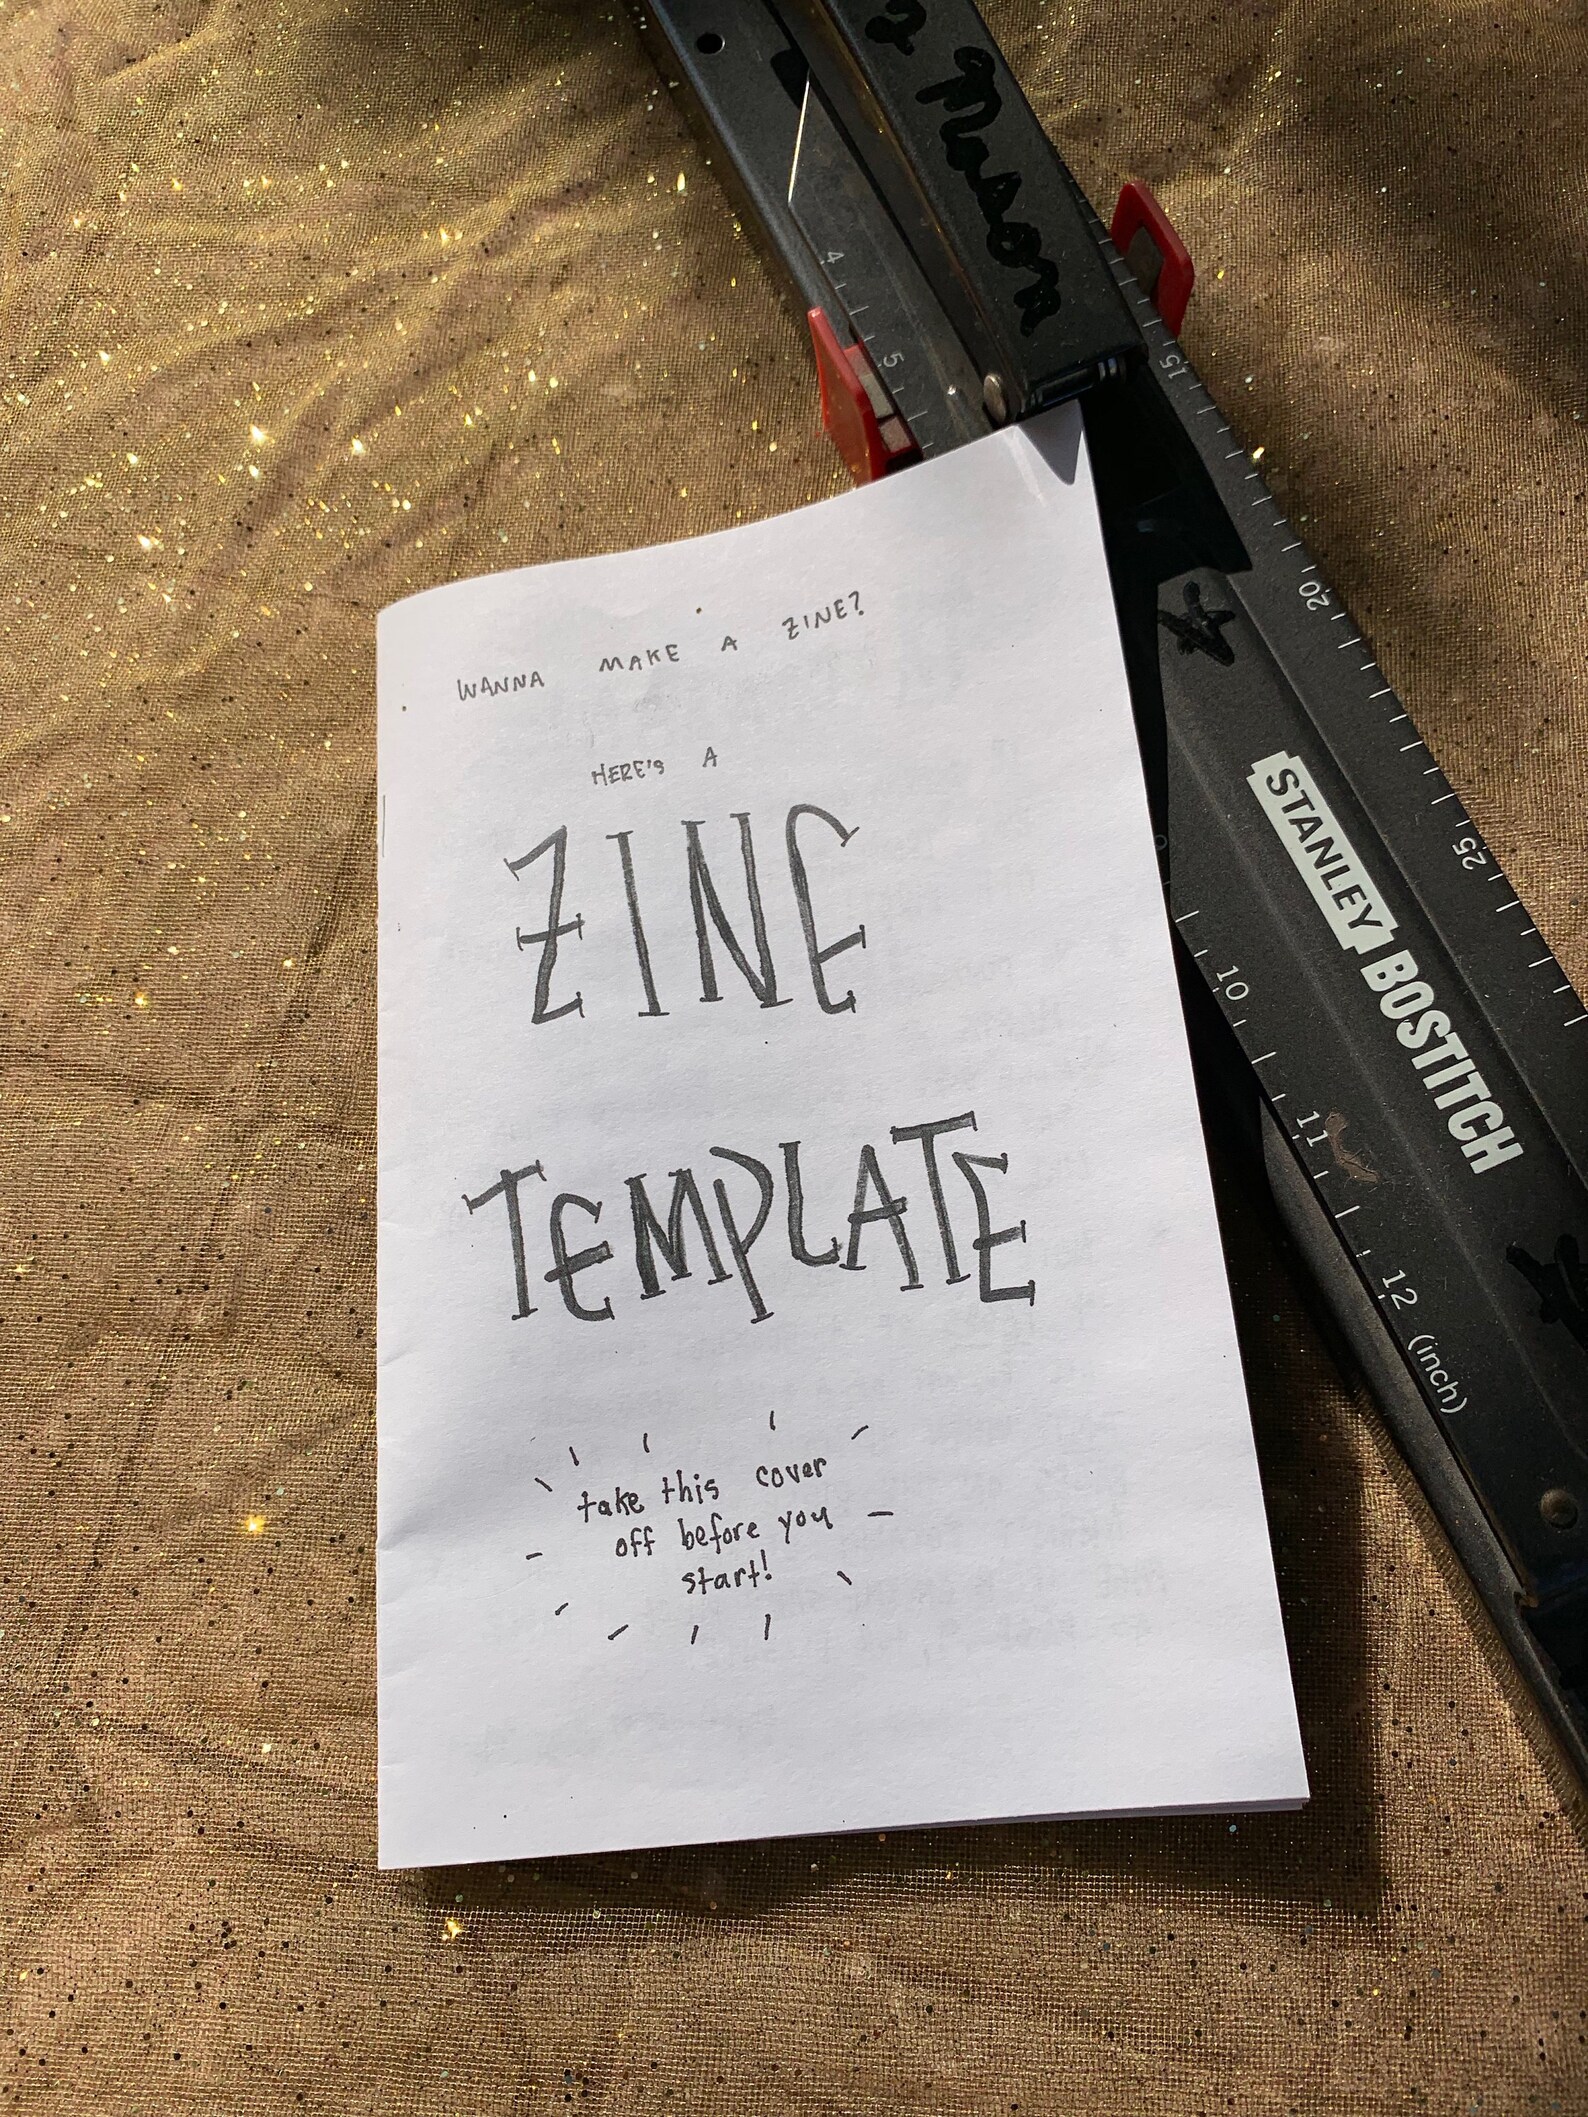 WANNA MAKE A ZINE?
HERE'S A
ZINE
TEMPLATE
take this cover
off before you
start!
Mason
4
5
15
20
25
STANLEY BOSTITCH
10
11
12 (inch)